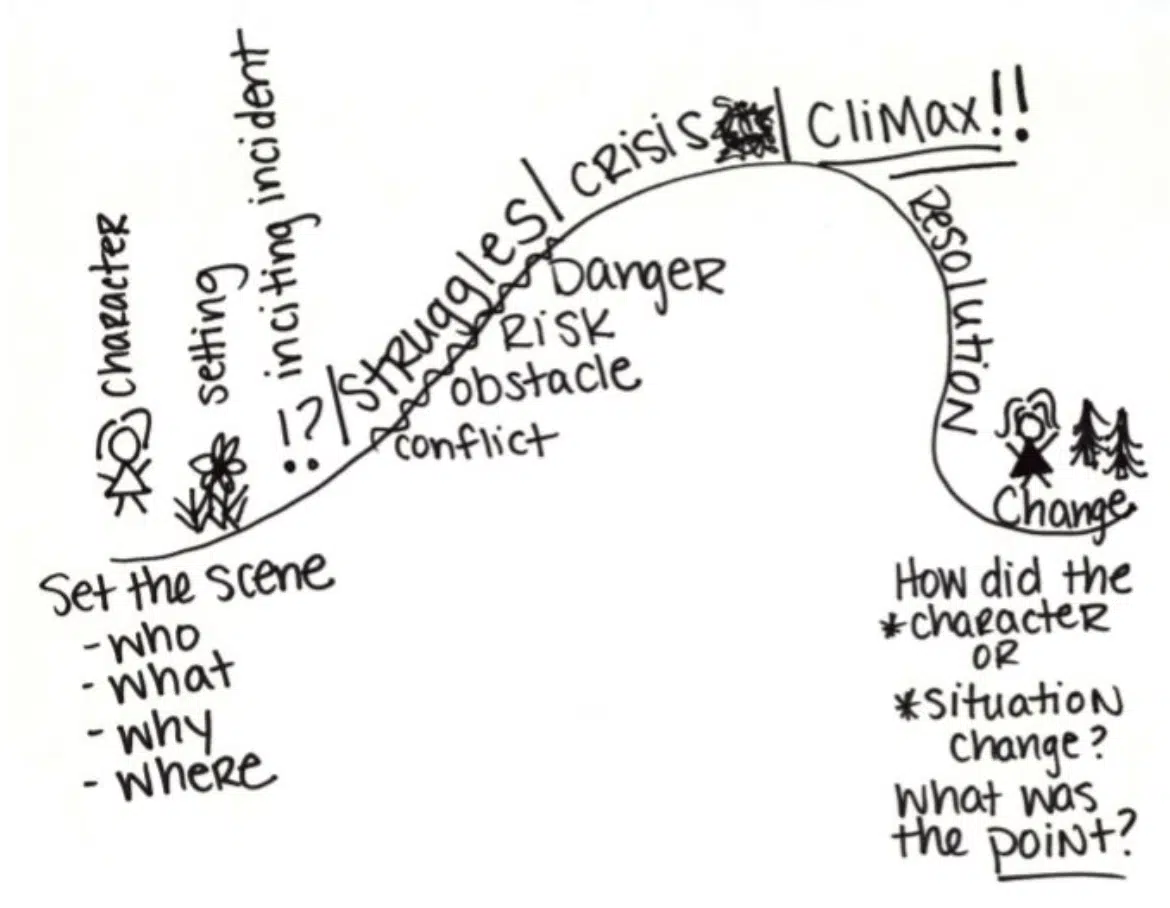 character
setting
inciting incident
!?
Struggles
crisis
Climax!!
Resolution
Danger
Risk
obstacle
conflict
Set the scene
- who
- what
- why
- where
Change
How did the
*character
OR
*situation
change?
What was
the point?